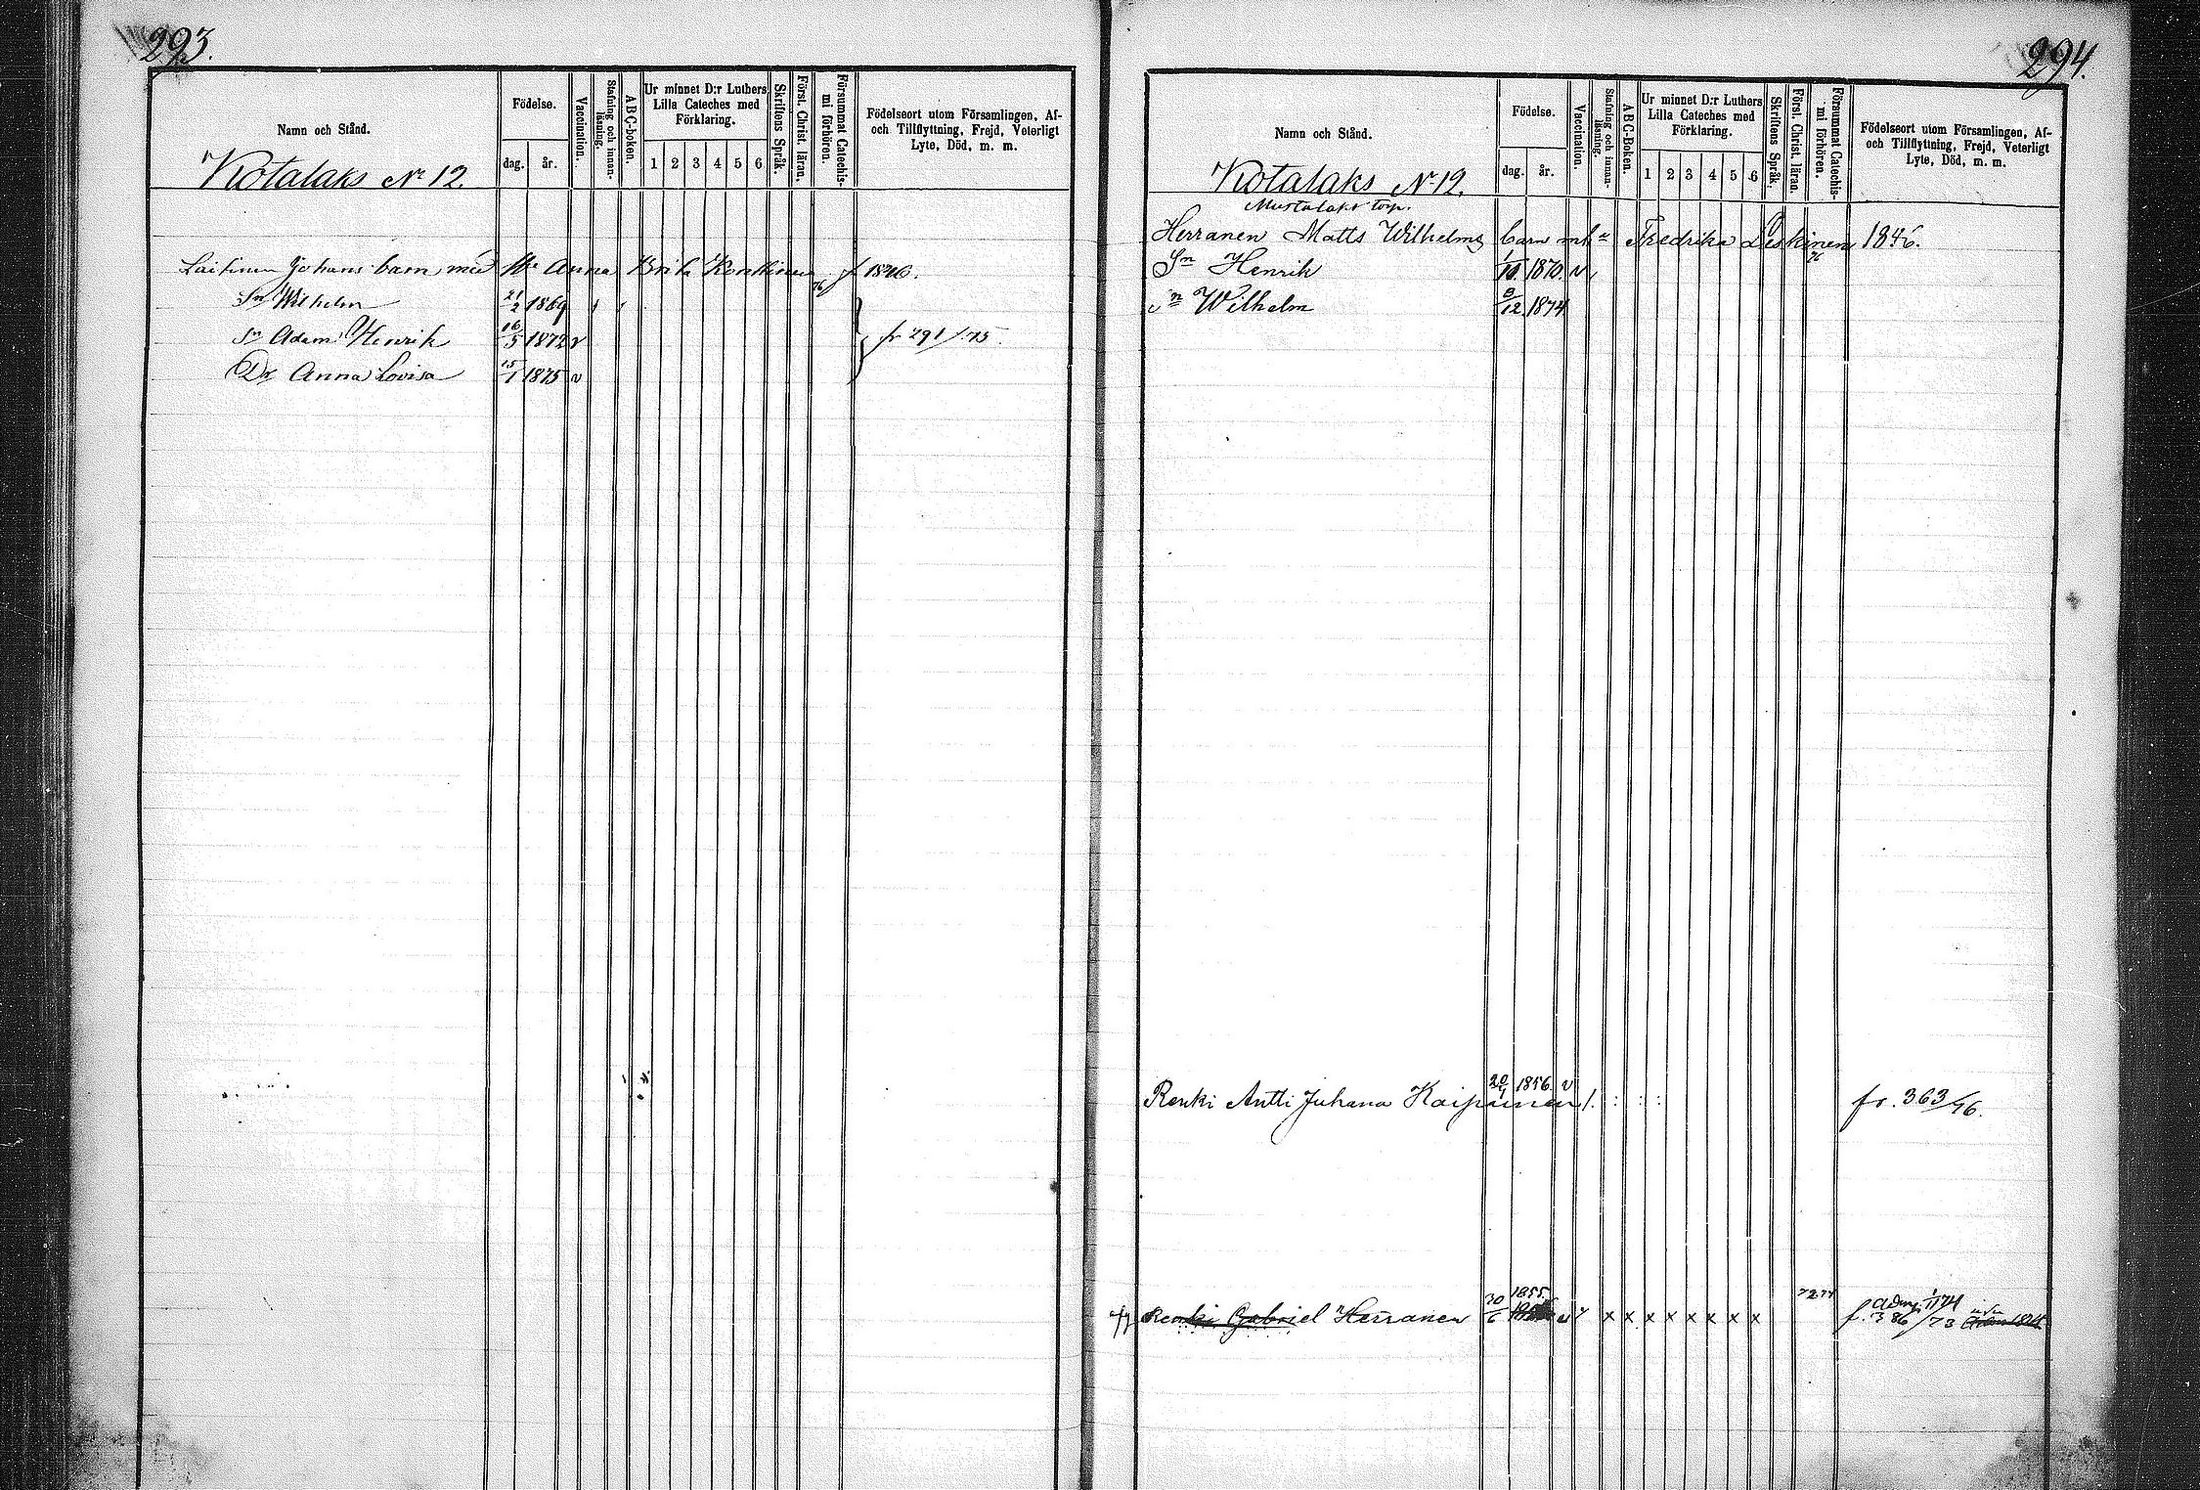 293.
Namn och Stånd.
Födelse.
dag.
år.
Vaccination.
Stafning och innan-
läsning.
ABC-boken.
Ur minnet D:r Luthers
Lilla Cateches med
Förklaring.
1 2 3 4 5 6
Skriftens Språk.
Först. Christ. läran.
Försummat Catechis-
mi förhören.
Födelseort utom Församlingen, Af-
och Tillflyttning, Frejd, Veterligt
Lyte, Död, m. m.
Kotalaks No 12.
Laitinen Johans barn med Anna Brita 76
Sn Wilhelm 21/2 1869
Sn Adam Henrik 16/5 1872 v
Dr Anna Lovisa 15/1 1875 v
fr 291/75.
294.
Namn och Stånd.
Födelse.
dag.
år.
Vaccination.
Stafning och innan-
läsning.
ABC-Boken.
Ur minnet D:r Luthers
Lilla Cateches med
Förklaring.
1 2 3 4 5 6
Skriftens Språk.
Först. Christ. läran.
Försummat Catechis-
mi förhören.
Födelseort utom Församlingen, Af-
och Tillflyttning, Frejd, Veterligt
Lyte, Död, m. m.
Kotalaks No 12.
Mustalaks torp.
Herranen Matts Wilhelms barn Fredrika Leskinen 1846.
76
Sn Henrik 1/10 1870. v
Sn Wilhelm 8/12 1874
20/4 1856. v
Renki Antti Juhana Kaipainen fr. 363/76.
1855.
Renki Gabriel Herranen 30/6 x x x x x x x x f. 386/73